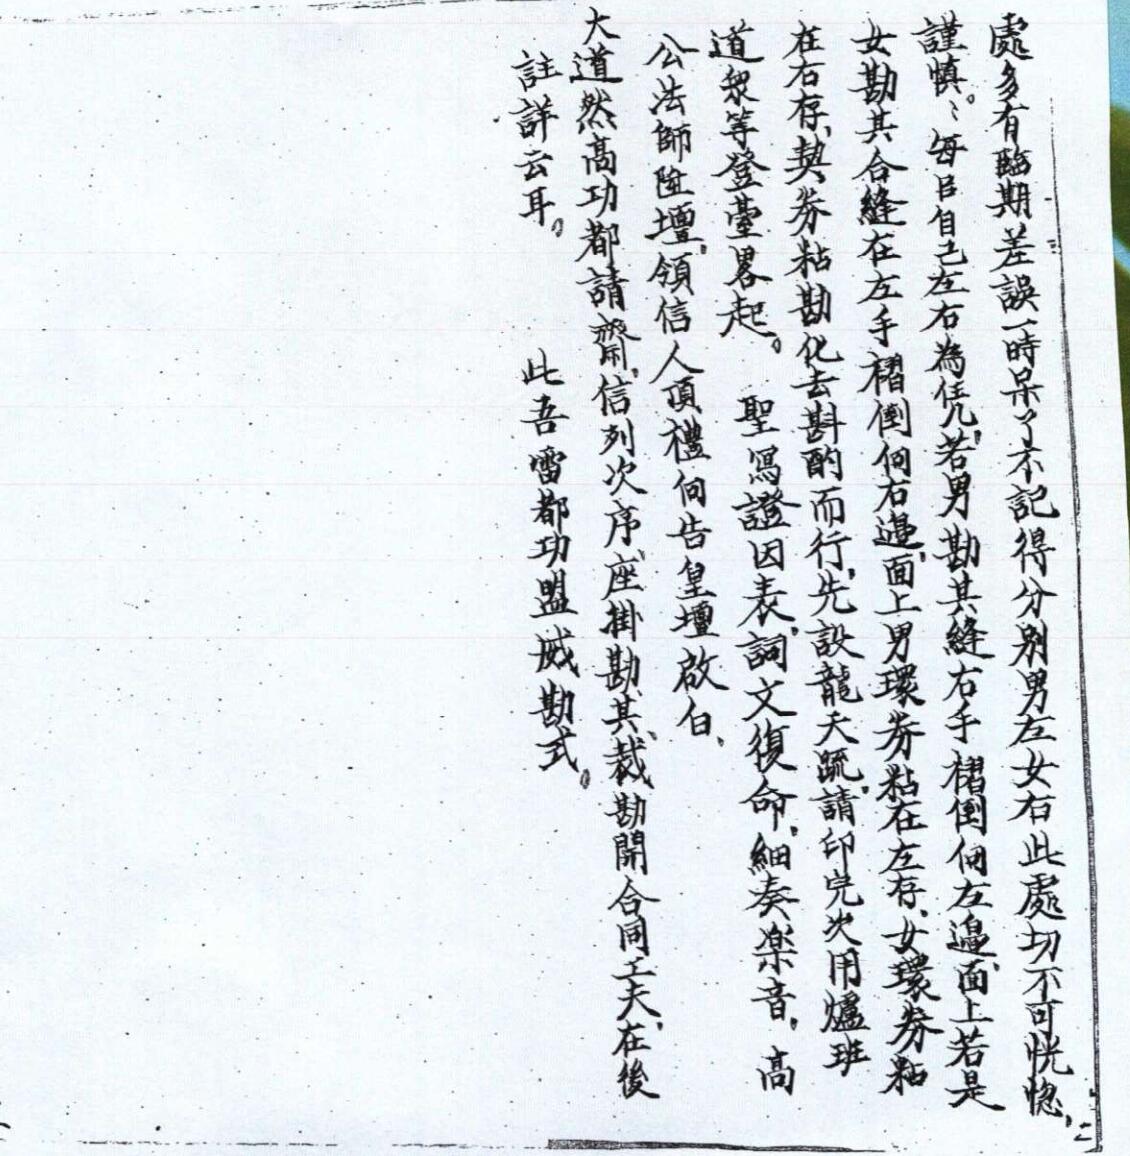 處多有臨期差誤一時呆々不記得分别男左女右此處切不可恍惚,
謹慎。〻每自己左右為凭,若男勘其縫右手褶倒向左邉面上若是
女勘其合縫在左手褶倒向右邉,面上男環券粘在左存,女環券粘
在右存,契券粘勘化去斟酌而行,先設龍天疏,請印完次用爐班
道衆等登臺畧起。 聖寫證因表,詞文復命,細奏楽音, 高
公法師陞壇,領信人頂禮向告皇壇啟白、
大道然高功都請齋,信列次序、座掛勘其裁勘開合同工夫,在後
註詳云耳。 此吾雷都功盟威勘式。